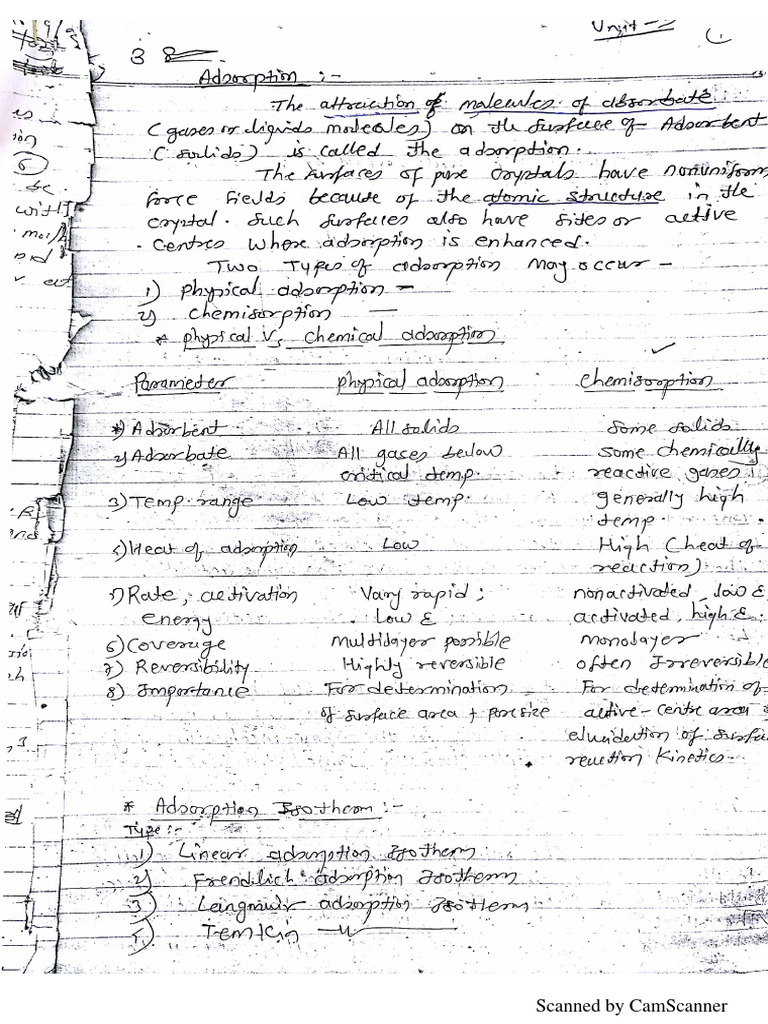 Unit-
B
Adsorption :-
The attraciation of molecules of absorbate
(gases or liquids molecules) on the surface of Adsorbent
(solids) is called the adsorption.
The surfaces of pure crystals have nonuniform
force fields because of the atomic structure in the
crystal. Such surfaces also have sites or active
centres where adsorption is enhanced.
Two Types of adsorption may occur -
1) physical adsorption -
2) chemisorption -
* physical Vs chemical adsorption
Parameter physical adsorption chemisorption
1) Adsorbent All solids Some solids
2) Adsorbate All gases below some chemically
critical temp. reactive gases
3) Temp. range Low temp. generally high
temp.
4) Heat of adsorption Low High (heat of
reaction)
5) Rate, activation Vary rapid; nonactivated, low E
energy Low E activated, high E.
6) Coverage Multilayer possible monolayer
7) Reversibility Highly reversible often Irreversible
8) Importance For determination For determination of
of surface area + pore size active-centre area &
eluidation of surface
reaction Kinetics.
* Adsorption Isotherm :-
Type :-
1) Linear adsorption Isotherm
2) Frendlich adsorption Isotherm
3) Langmuir adsorption Isotherm
4) Temkin
Scanned by CamScanner